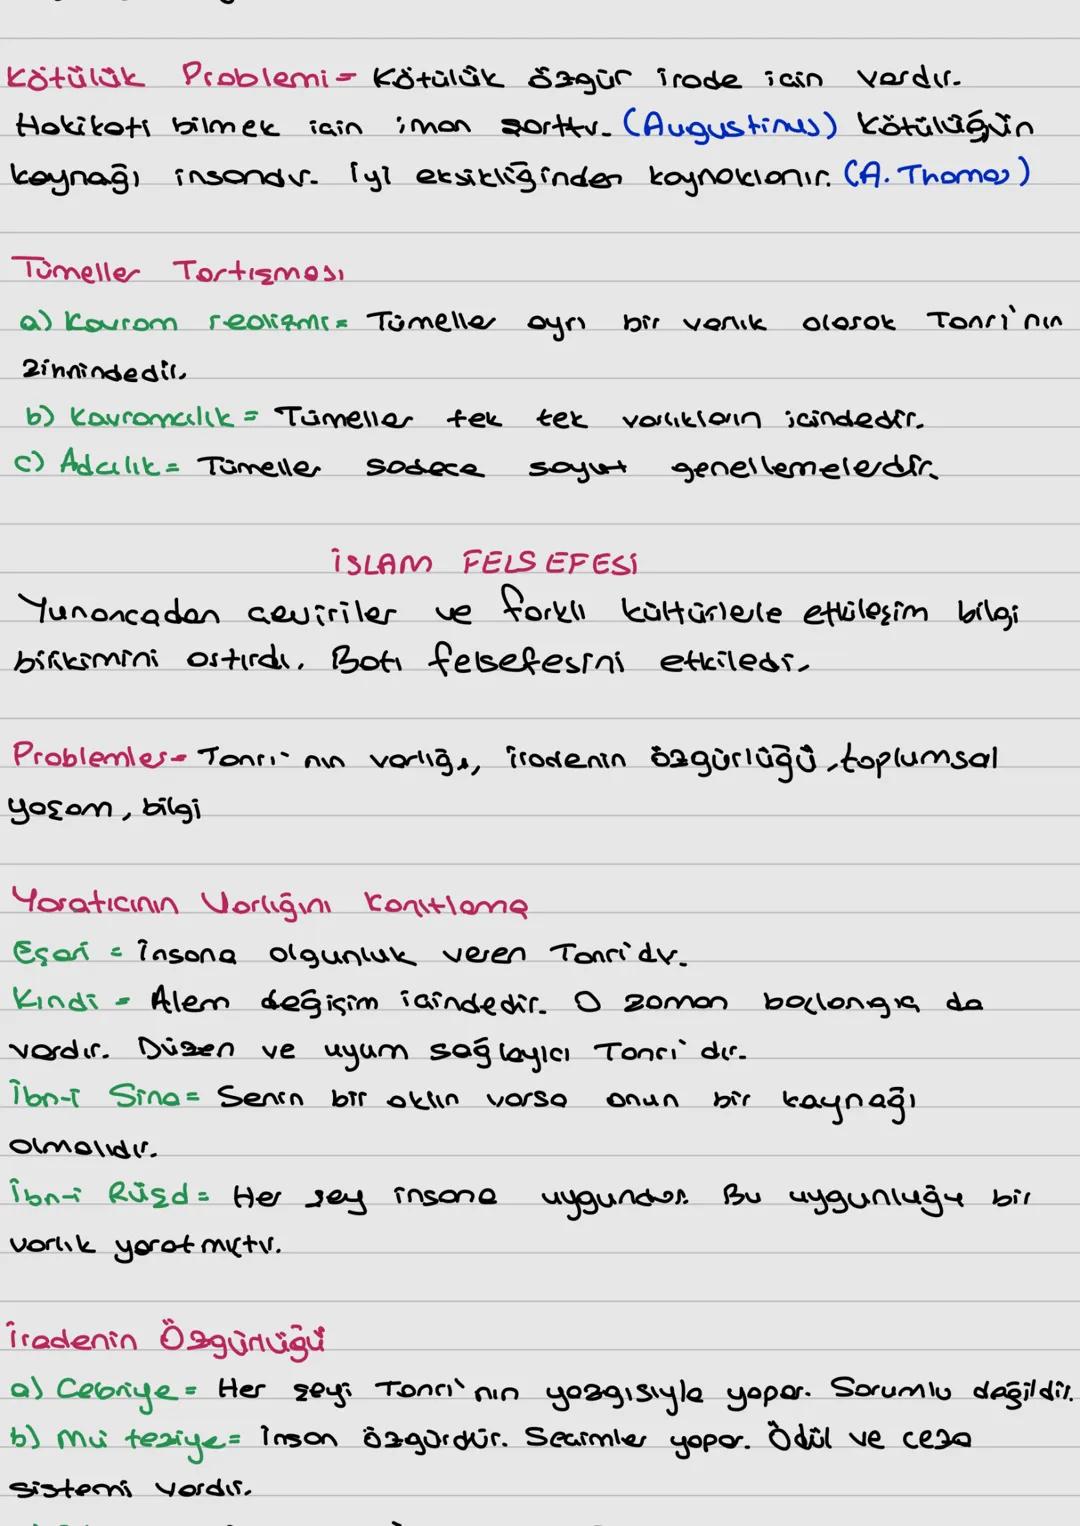 Kötülük Problemi= Kötülük özgür irade için vardır.
Hakikati bilmek için iman şarttır. (Augustinus) Kötülüğün
kaynağı insandır. İyi eksikliğinden kaynaklanır. (A. Thomas)
Tümeller Tartışması
a) Kavram realizmi= Tümeller ayrı bir varlık olarak Tanrı'nın
zihnindedir.
b) Kavramcılık= Tümeller tek tek varlıkların içindedir.
c) Adcılık= Tümeller sadece soyut genellemelerdir.
İSLAM FELSEFESİ
Yunancadan çeviriler ve farklı kültürlerle etkileşim bilgi
birikimini artırdı. Batı felsefesini etkiledi.
Problemler= Tanrı'nın varlığı, iradenin özgürlüğü, toplumsal
yaşam, bilgi
Yaratıcının Varlığını Kanıtlama
Eşari = İnsana olgunluk veren Tanrı'dır.
Kindi = Alem değişim içindedir. O zaman başlangıç da
vardır. Düzen ve uyum sağlayıcı Tanrı'dır.
İbn-i Sina= Senin bir aklın varsa onun bir kaynağı
olmalıdır.
İbn-i Rüşd= Her şey insana uygundur. Bu uygunluğu bir
varlık yaratmıştır.
İradenin Özgürlüğü
a) Cebriye= Her şeyi Tanrı'nın yazgısıyla yapar. Sorumlu değildir.
b) Mu tezile= İnsan özgürdür. Seçimler yapar. Ödül ve ceza
sistemi vardır.